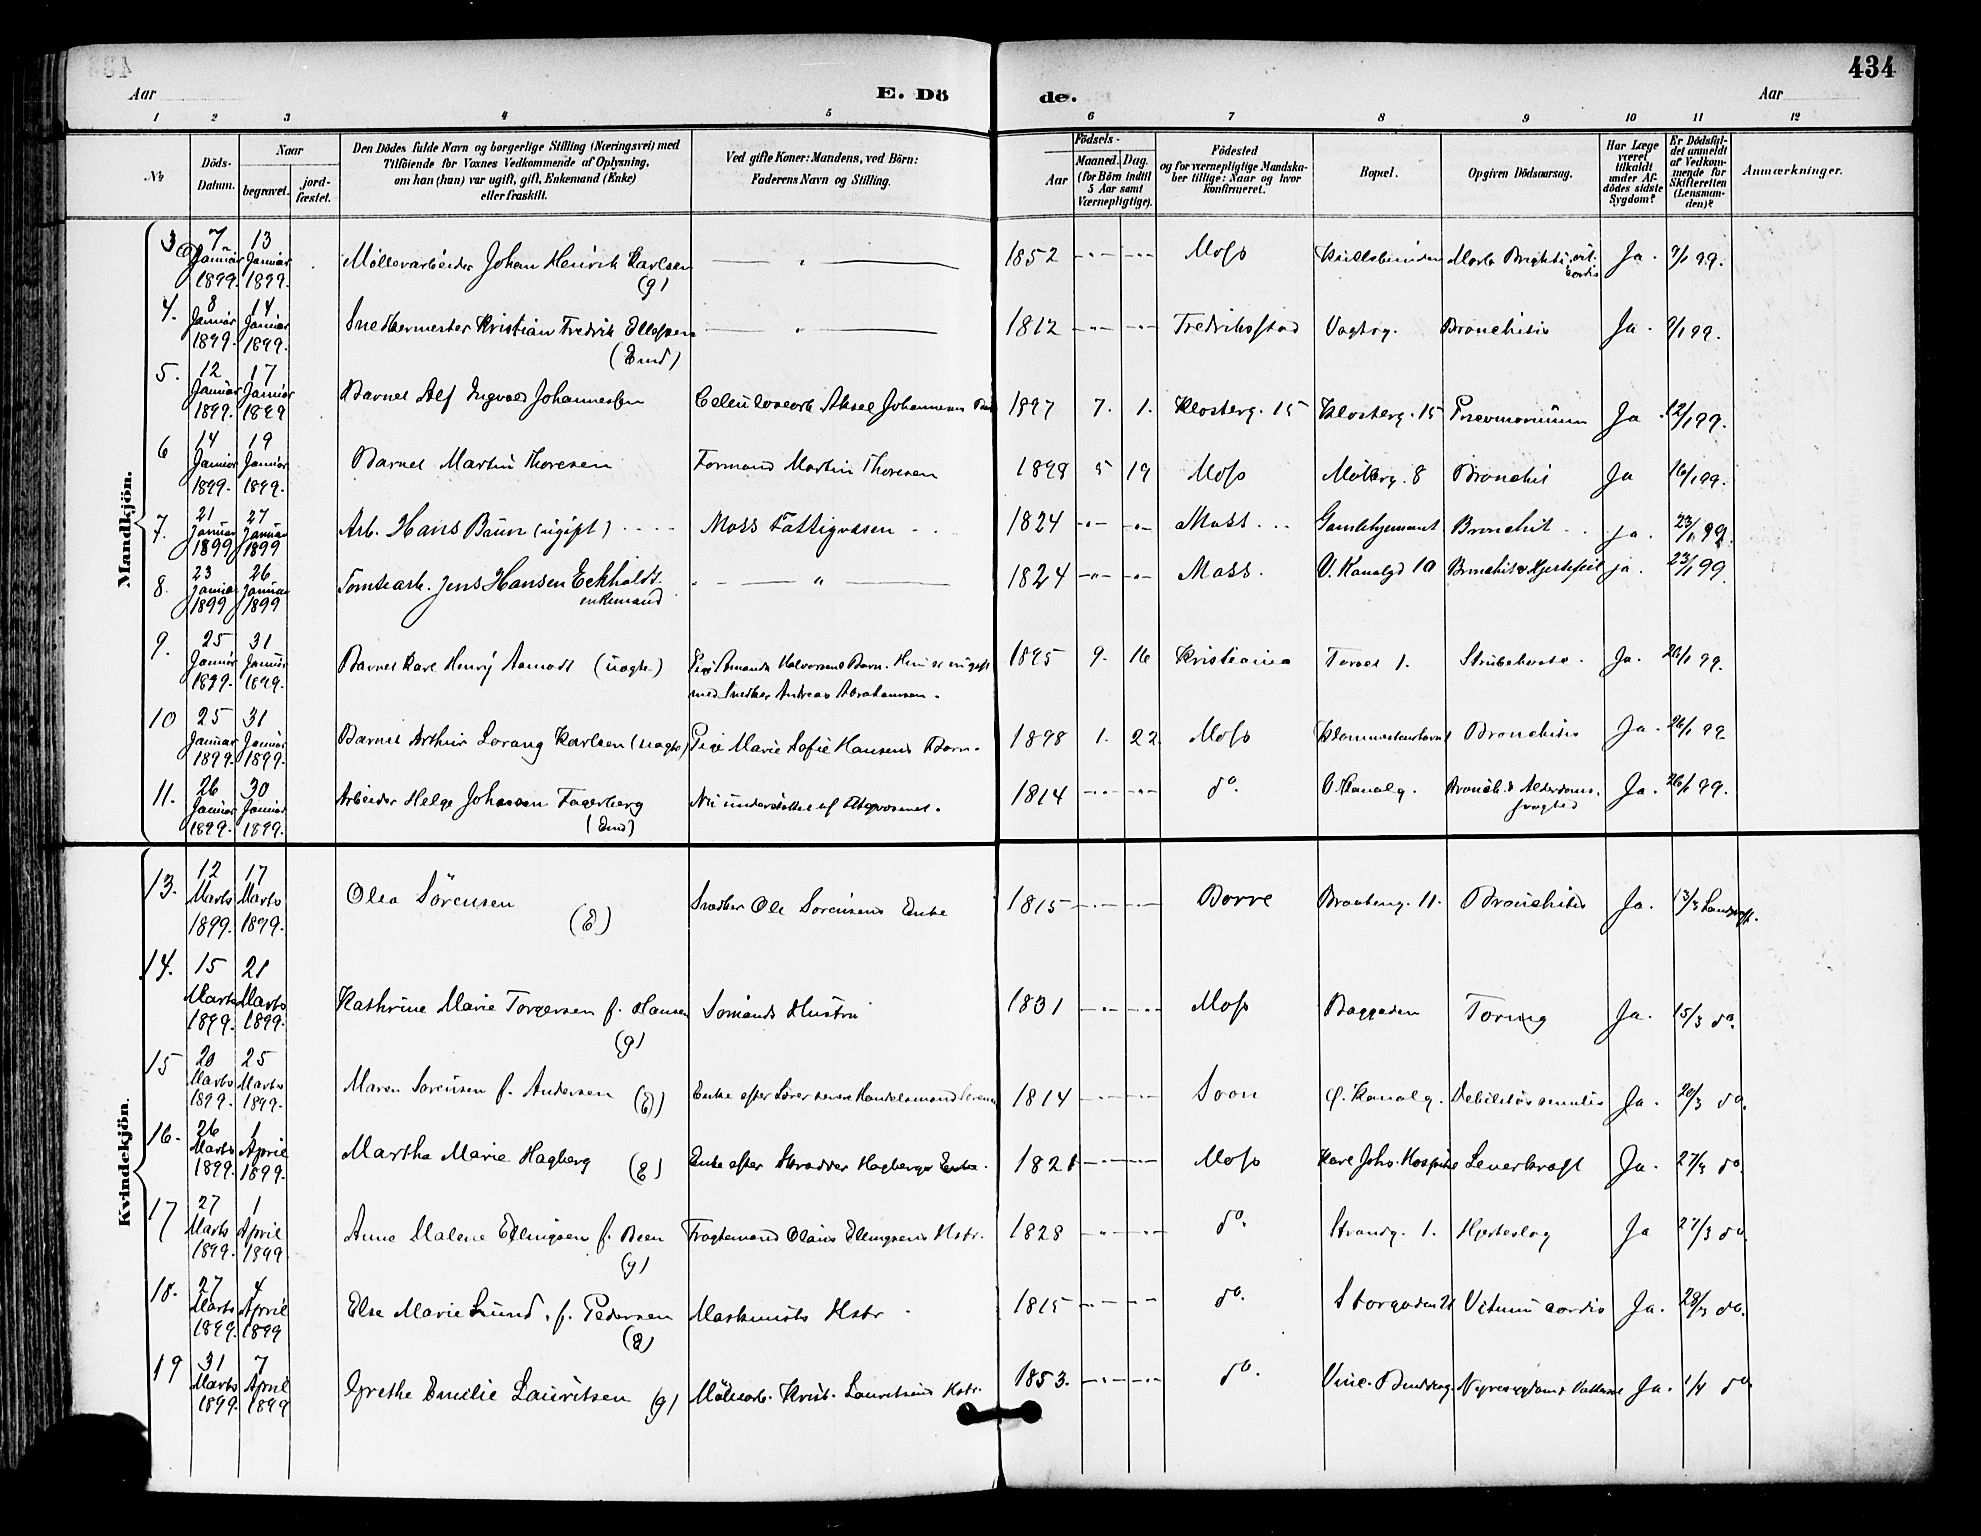 434
Aar
E. Dö
de.
Aar
1 2 3 4 5 6 7 8 9 10 11 12
№
Döds-
Datum.
Naar
begravet.
jord-
fæstet.
Den Dödes fulde Navn og borgerlige Stilling (Næringsvei) med
Tilföiende for Voxnes Vedkommende af Oplysning,
om han (hun) var ugift, gift, Enkemand (Enke)
eller fraskilt.
Ved gifte Koner: Mandens, ved Börn:
Faderens Navn og Stilling.
Födsels-
Aar
Maaned. Dag.
(for Börn indtil
5 Aar samt
Værnepligtige).
Födested
og for værnepligtige Mandska-
ber tillige: Naar og hvor
konfirmeret.
Bopæl.
Opgiven Dödsaarsag.
Har Læge
været
tilkaldt
under Af-
dödes sidste
Sygdom?
Er Dödsfal-
det anmeldt
af Vedkom-
mende for
Skifteretten
(Lensman-
den)?
Anmærkninger.
Mandkjön.
3 7 Januar 1899 13 Januar 1899. Möllerarbeider Johan Henrik Karlsen (g) 1852 Moss Morb. Brightii, vit. cordis Ja. 9/1 99.
4. 8 Januar 1899. 14 Januar 1899. Snedkermester Kristian Fredrik Ellefsen (Emd) 1812 Fredrikstad Vogtsg. Bronchitis Ja. 9/1 99.
5. 12 Januar 1899. 17 Januar 1899 Barnet Alf Ingvald Johannessen Celulosearb. Aksel Johannesen 1897 7. 1. Klosterg. 15 Klosterg. 15 Ja 12/1 99.
6 14 Januar 1899. 19 Januar 1899. Barnet Martin Thoresen Formand Martin Thoresen 1898 5 19 Moss Möllerg. 8 Bronchit Ja 16/1 99.
7. 21 Januar 1899 27 Januar 1899 Arb. Hans Baun (ugift) Moss Fattigvæsen 1824 Moss Gamlehjemmet Bronchit ja. 23/1 99.
8. 23 Januar 1899 26 Januar 1899 Tomtearb. Jens Hansen Eckholdt enkemand 1824 Moss. V. Kanalgd 10 Bronchit & Hjertefeil ja. 23/1 99.
9. 25 Januar 1899 31 Januar 1899. Barnet Karl Henry Aamodt (uægte) Pige Amanda Halvorsens Barn. Hun er nu gift
med Snedker Andreas Abrahamsen. 1895 9. 16 Kristiania Torvet 1. Strubehoste. Ja. 26/1 99.
10 25 Januar 1899. 31 Januar 1899. Barnet Arthur Lorang Karlsen (uægte) Pige Marie Sofie Hansens Barn. 1898 1. 22 Moss Bronchitis Ja. 26/1 99
11. 26 Januar 1899. 30 Januar 1899. Arbeider Helge Johansen Fagerberg (Emd) Nu understöttet af 1814 do. V. Kanalg. Bronch. & Alderdoms- svaghed Ja. 26/1 99.
Kvindekjön.
13. 12 Marts 1899. 17 Marts 1899. Olea Sörensen (E) Snedker Ole Sörensens Enke 1815 Borre Braateng. 11. Bronchitis Ja. 13/3
14. 15 Marts 1899. 21 Marts 1899. Kathrine Marie Torgersen f. Hansen (g) Sömands Hustru 1831 Moss Baggaden Tæring Ja. 15/3 do.
15 20 Marts 1899. 25 Marts 1899. Maren Sörensen f. Andersen (E) Enke efter 1814 Soon Ø. Kanalg. Debilitas senilis Ja. 20/3 do.
16. 26 Marts 1899. 1 April 1899. Martha Marie Hagberg (E) Enke efter Skrædder Hagbergs Enke. 1821 Moss Karl Johs. Hospital Leverkræft Ja. 27/3 do.
17 27 Marts 1899. 1 April 1899 Anne Malene Ellingsen f. Been (g) Fragtemand Olaus Ellingsens Hstr. 1828 do. Strandg. 1. Hjerteslag Ja 27/3 do.
18. 27 Marts 1899. 4 April 1899 Else Marie Lund, f. Pedersen (E) Maskinists Hstr 1815 do. Storgaden 21 Vitium cordis Ja. 28/3 do.
19 31 Marts 1899. 7 April 1899 Grethe Emilie Lauritsen (g) Möllearb. Krist. Lauritsens Hstr. 1853. do. Vinc. Buddeg. Nyresygdom & Vattersot Ja. 1/4 do